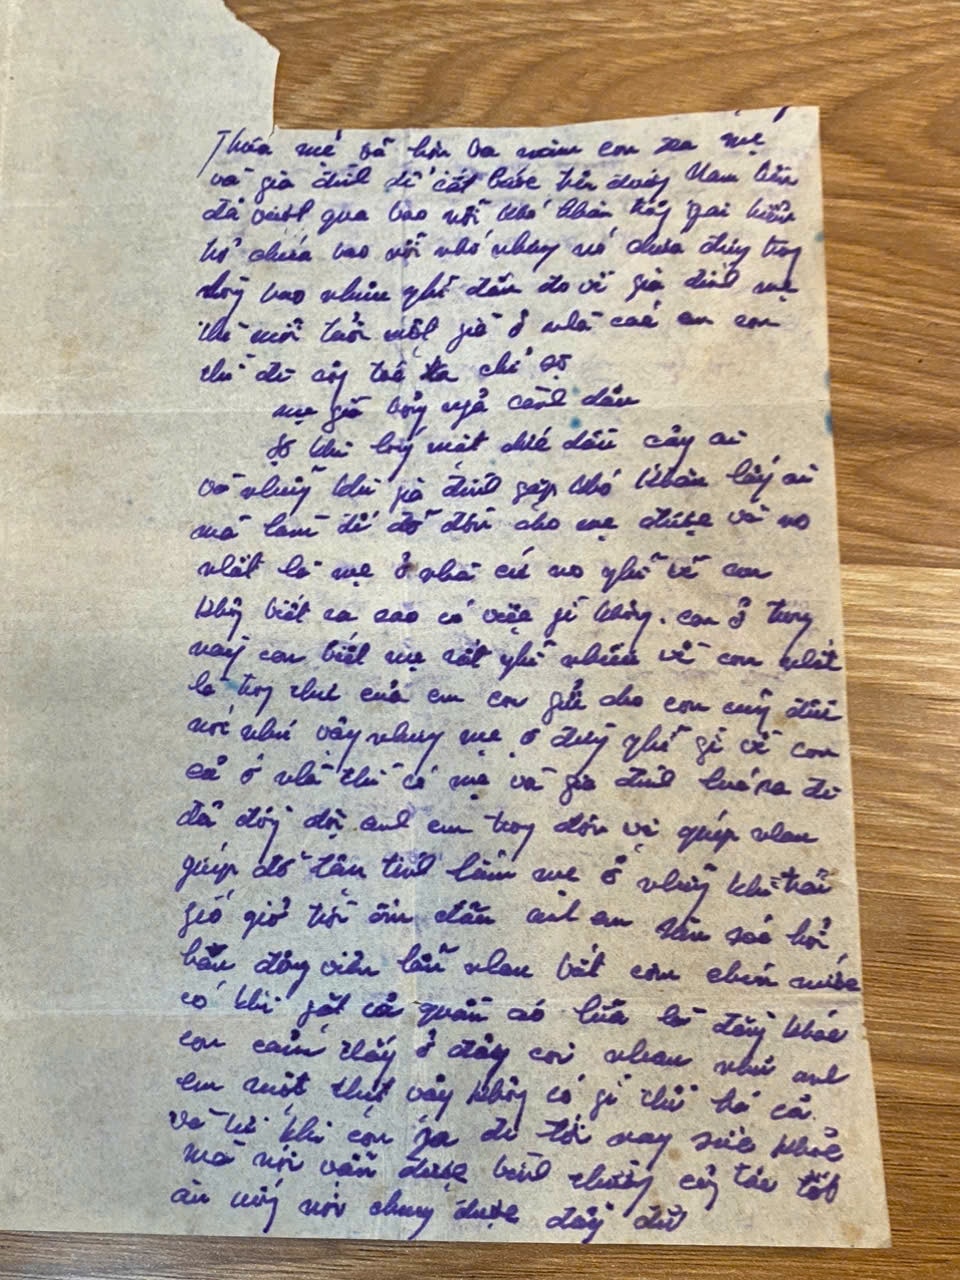 Thưa mẹ và hơn ba năm con xa mẹ
và gia đình để cất bước trên đường Nam tiến
đã vượt qua bao nỗi khó khăn gai
bao nỗi nhớ nhung nó chứa đựng trong
lòng bao nhiêu nghĩ đắn đo về gia đình mẹ
thì mỗi tuổi một già ở nhà các em con
thì đi công tác xa chỉ sợ
mẹ già bóng ngả cành dâu
Sợ khi trong mát dãi dầu cậy ai
và những khi gia đình gặp khó khăn lấy ai
mà làm để đỡ đần cho mẹ được và no
nhất là mẹ ở nhà cứ no nghĩ về con
không biết ra sao có việc gì không. con ở trong
này con biết mẹ rất nghĩ nhiều về con nhất
là trong thư của em con gửi cho con cũng đều
nói như vậy nhưng mẹ ơ đừng nghĩ gì về con
cả ở nhà thì có mẹ và gia đình lúc ra đi
đã có đồng đội anh em trong đơn vị giúp nhau
giúp đỡ tận tình lắm mẹ ở những khi trái
gió giở trời ốm đau anh em săn soc hỏi
han động viên lẫn nhau bát cơm chén nước
có khi giặt cả quần áo lữa là đằng khác
con cảm thấy ở đây coi nhau như anh
em một thịt vậy không có gì thù há cả.
và từ khi con ra đi tới nay sức khỏe
mà nói vẫn được bình thường công tác tốt
ăn uống nói chung được đầy đủ